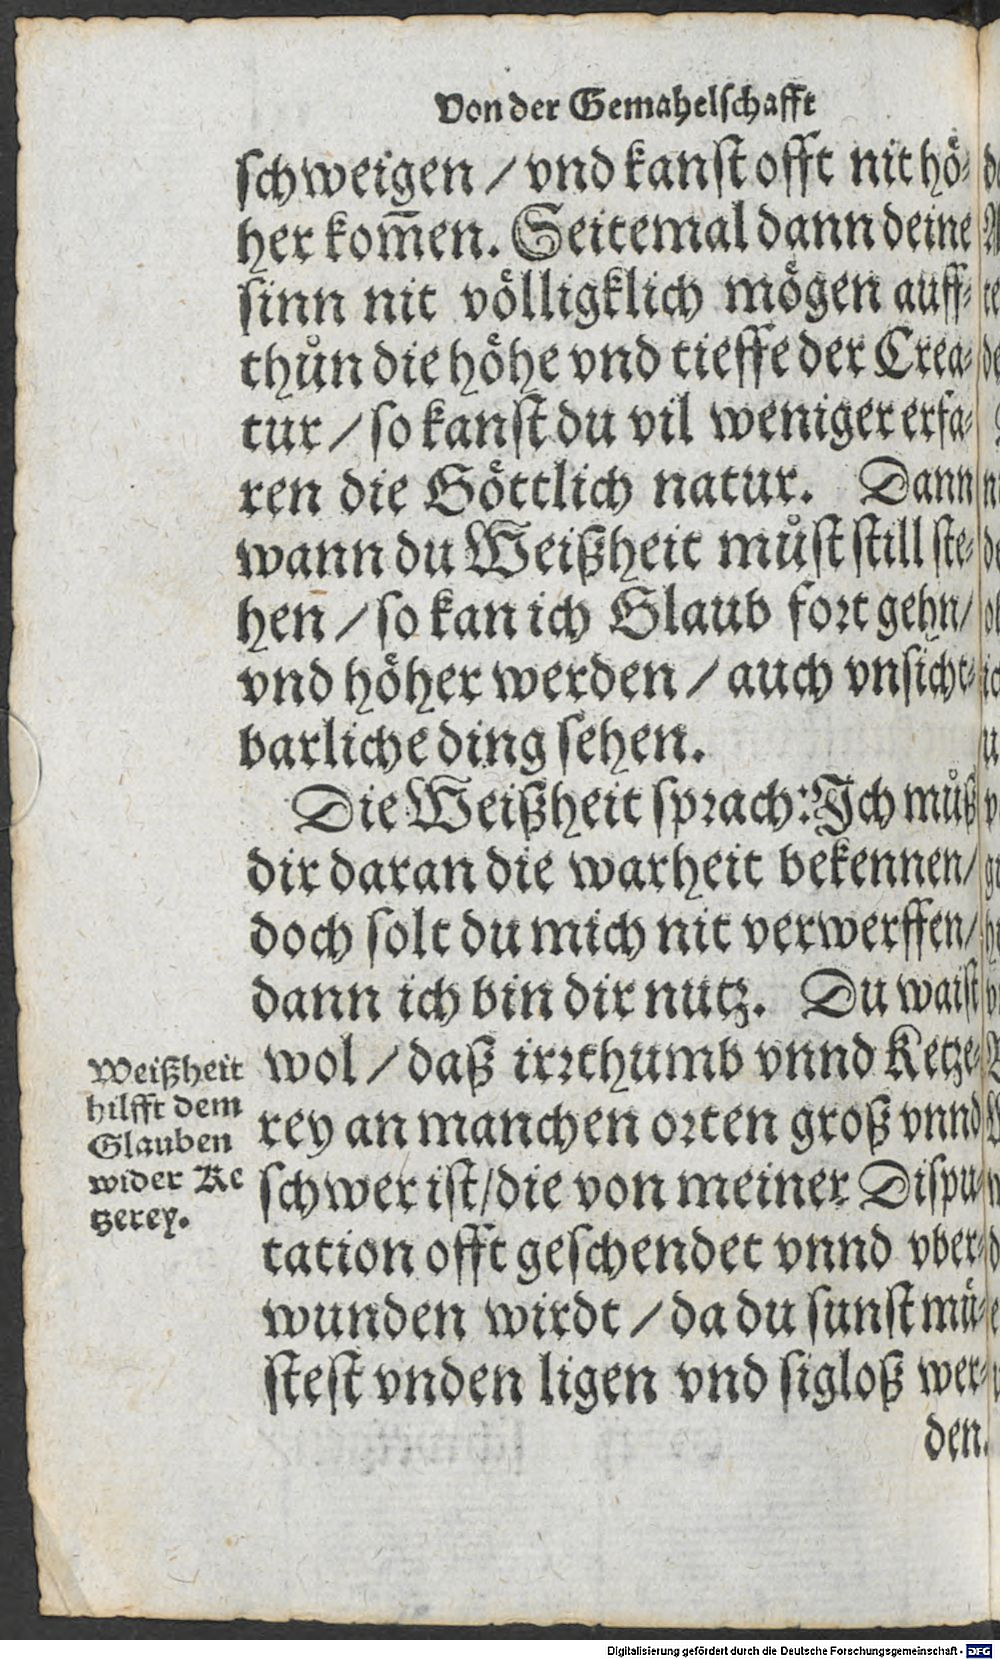 Von der Gemahelschafft
schweigen / vnd kanst offt nit hö-
her kom̅en. Seitemal dann deine
sinn nit völligklich mögen auff-
thůn die höhe vnd tieffe der Crea-
tur / so kanst du vil weniger erfa-
ren die Göttlich natur. Dann
wann du Weißheit můst still ste-
hen / so kan ich Glaub fort gehn /
vnd höher werden / auch vnsicht-
barliche ding sehen.
Die Weißheit sprach: Ich můß
dir daran die warheit bekennen /
doch solt du mich nit verwerffen /
dann ich bin dir nutz. Du waist
wol / daß irrthumb vnnd Ketze-
rey an manchen orten groß vnnd
schwer ist / die von meiner Dispu-
tation offt geschendet vnnd vber-
wunden wirdt / da du sunst mü-
stest vnden ligen vnd sigloß wer-
den.
Weißheit
hilfft dem
Glauben
wider Ke
tzerey.
Digitalisierung gefördert durch die Deutsche Forschungsgemeinschaft - DFG